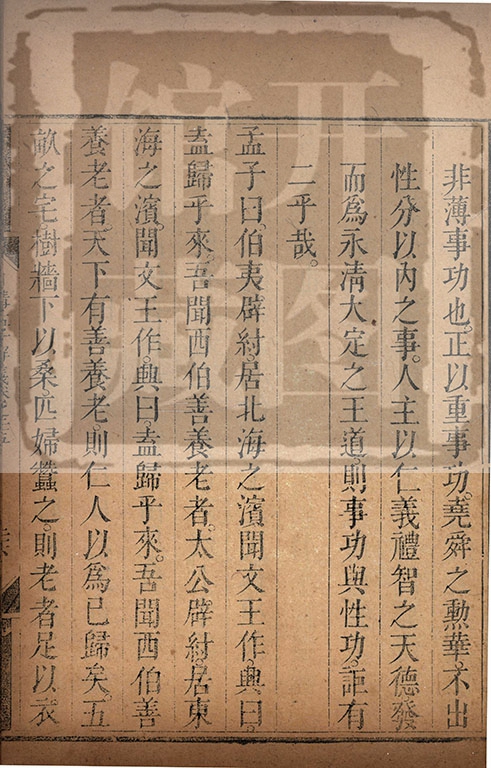 非薄事功也。正以重事功。堯舜之勳華。不出
性分以內之事。人主以仁義禮智之天德發
而爲永清大定之王道則事功與性功。詎有
二乎哉。
孟子曰。伯夷辟紂。居北海之濱聞文王作。興曰。
盍歸乎來。吾聞西伯善養老者。太公辟紂。居東
海之濱。聞文王作。興曰。盍歸乎來。吾聞西伯善
養老者。天下有善養老。則仁人以爲己歸矣。五
畝之宅。樹牆下以桑。匹婦蠶之。則老者足以衣